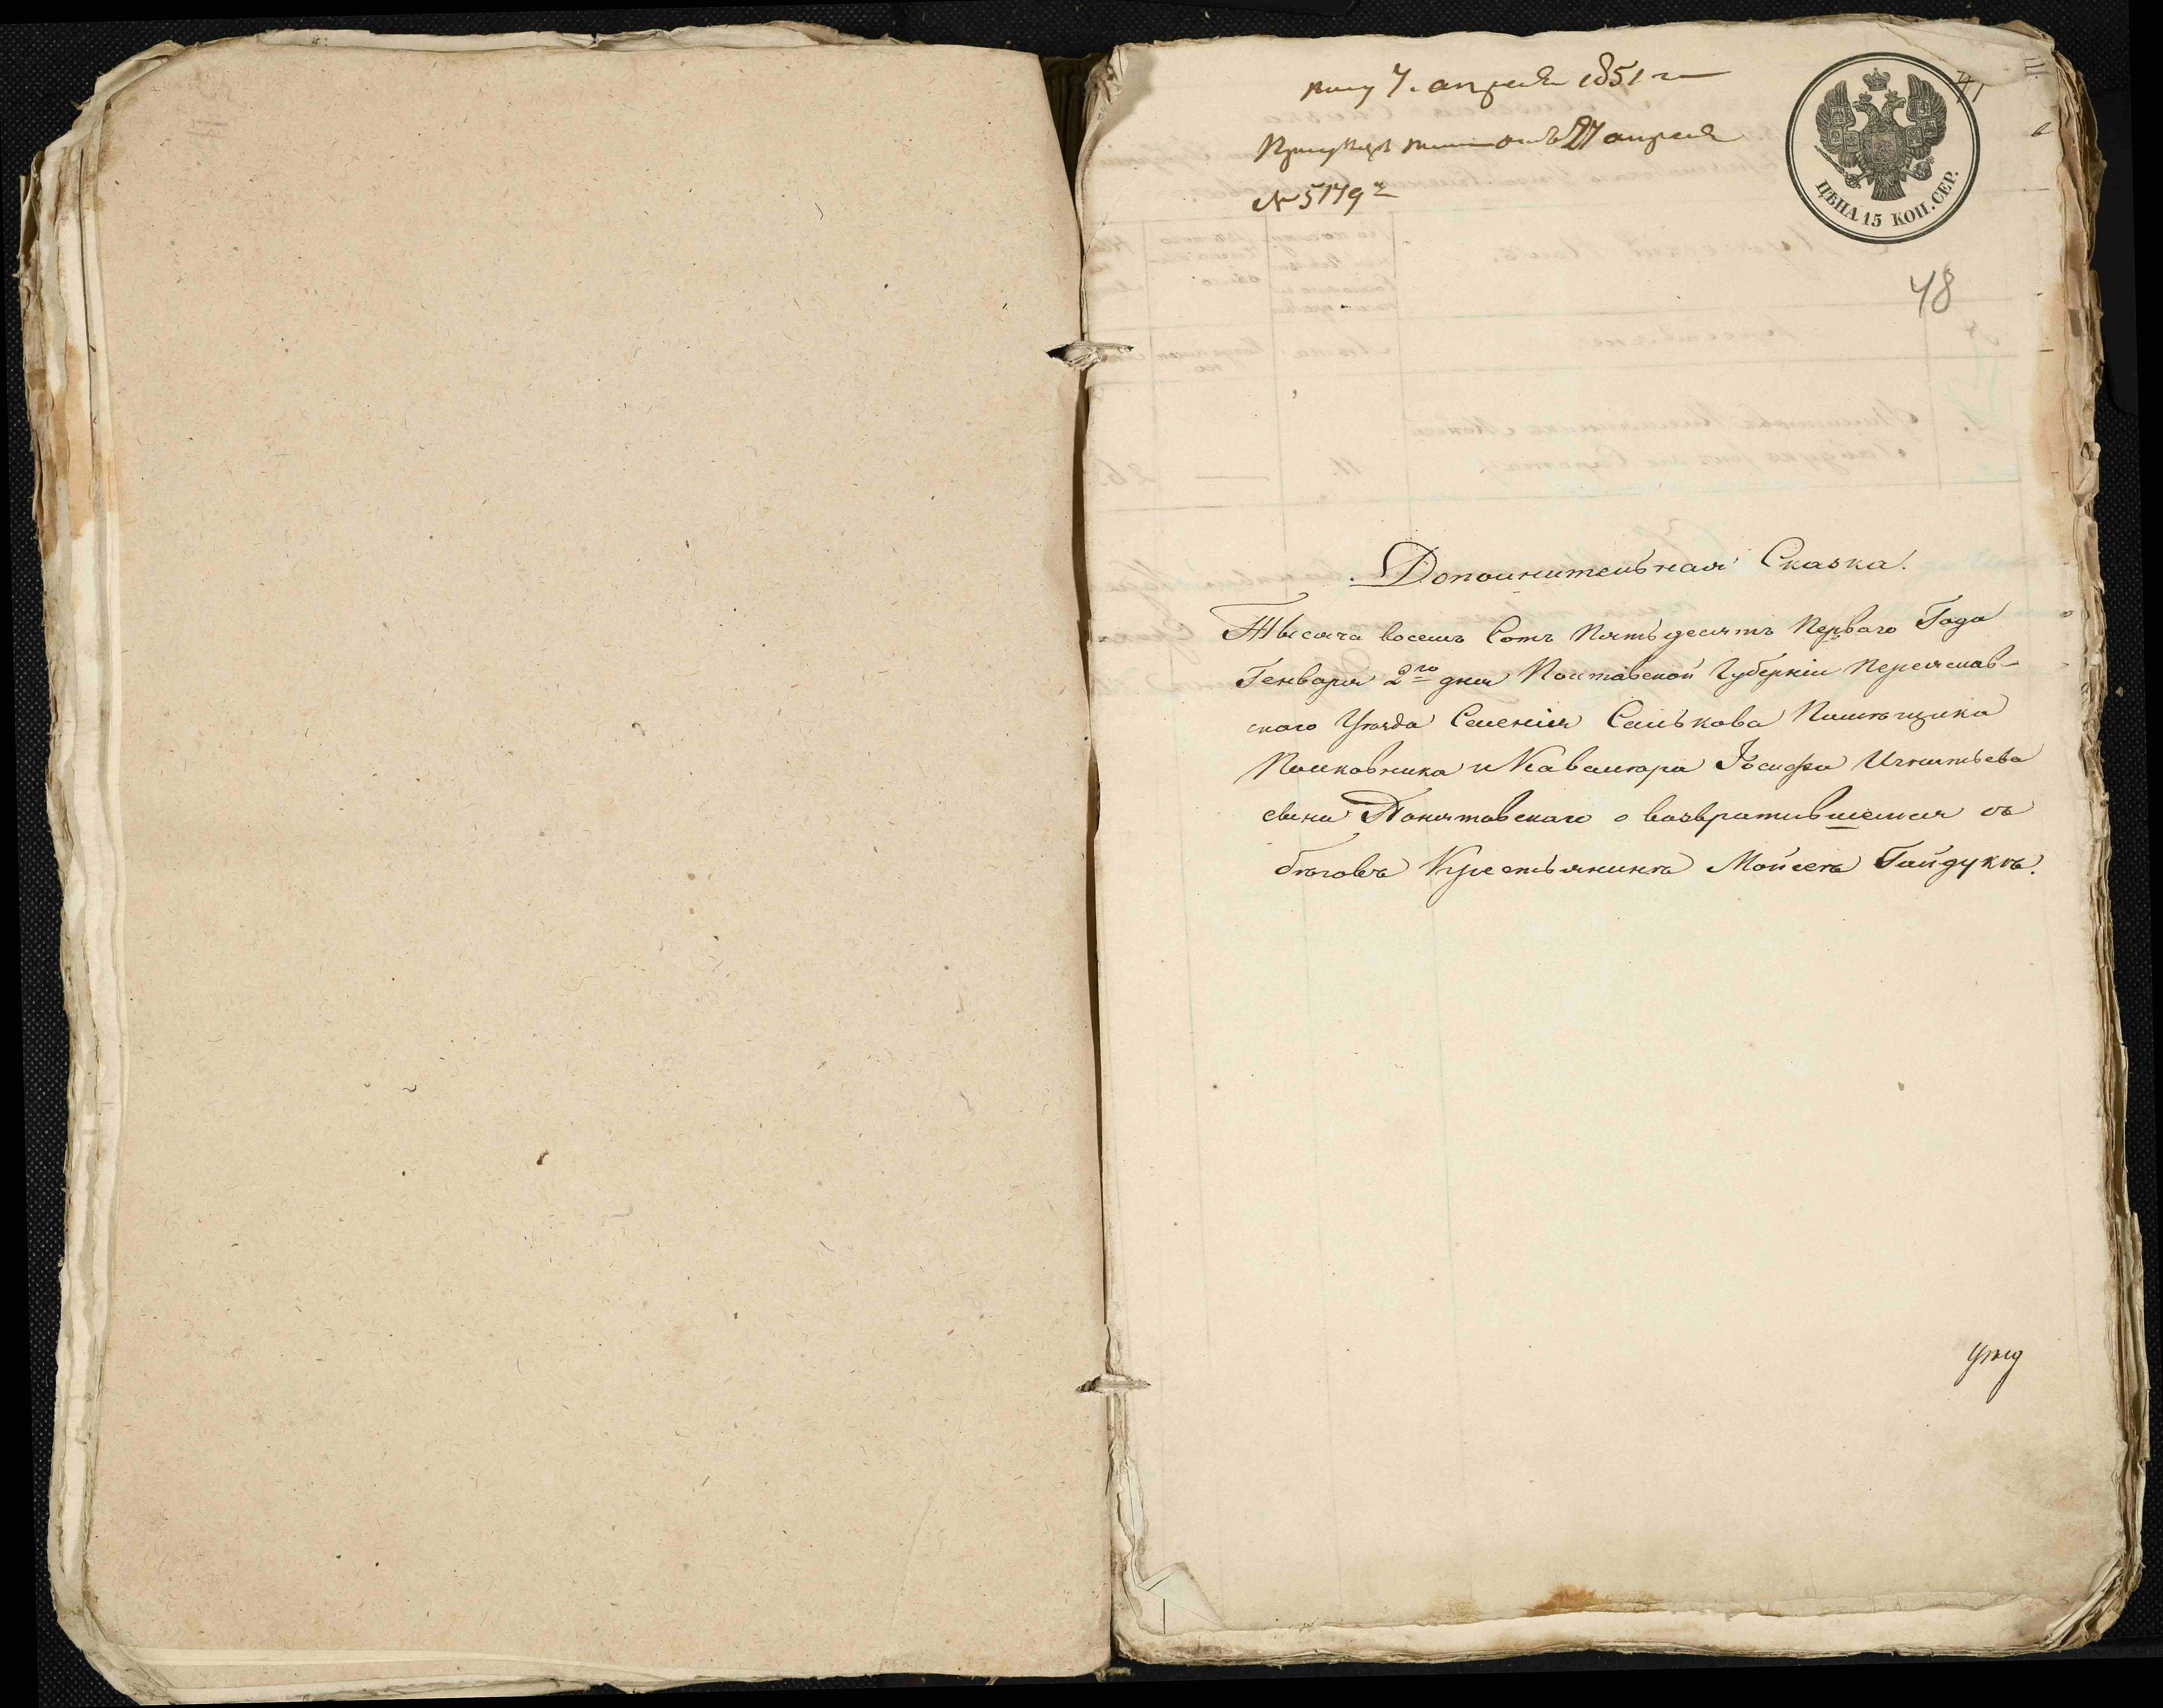 пол 7. апреля 1851 г
27 апреля
№ 5179
ЦѢНА 15 КОП. СЕР.
48
Дополнительная Сказка.
Тысяча восемь Сотъ Пятьдесятъ Перваго Года
Генваря 2го дня Полтавской Губерніи Переяслав-
скаго Уѣзда Селенія Сулькова Помѣщика
Полковника и Кавалера Іосифа Игнатьева
сына Понятовскаго о возвратившемся съ
бѣговъ Крестьянинѣ Мойсеѣ Гайдукѣ.